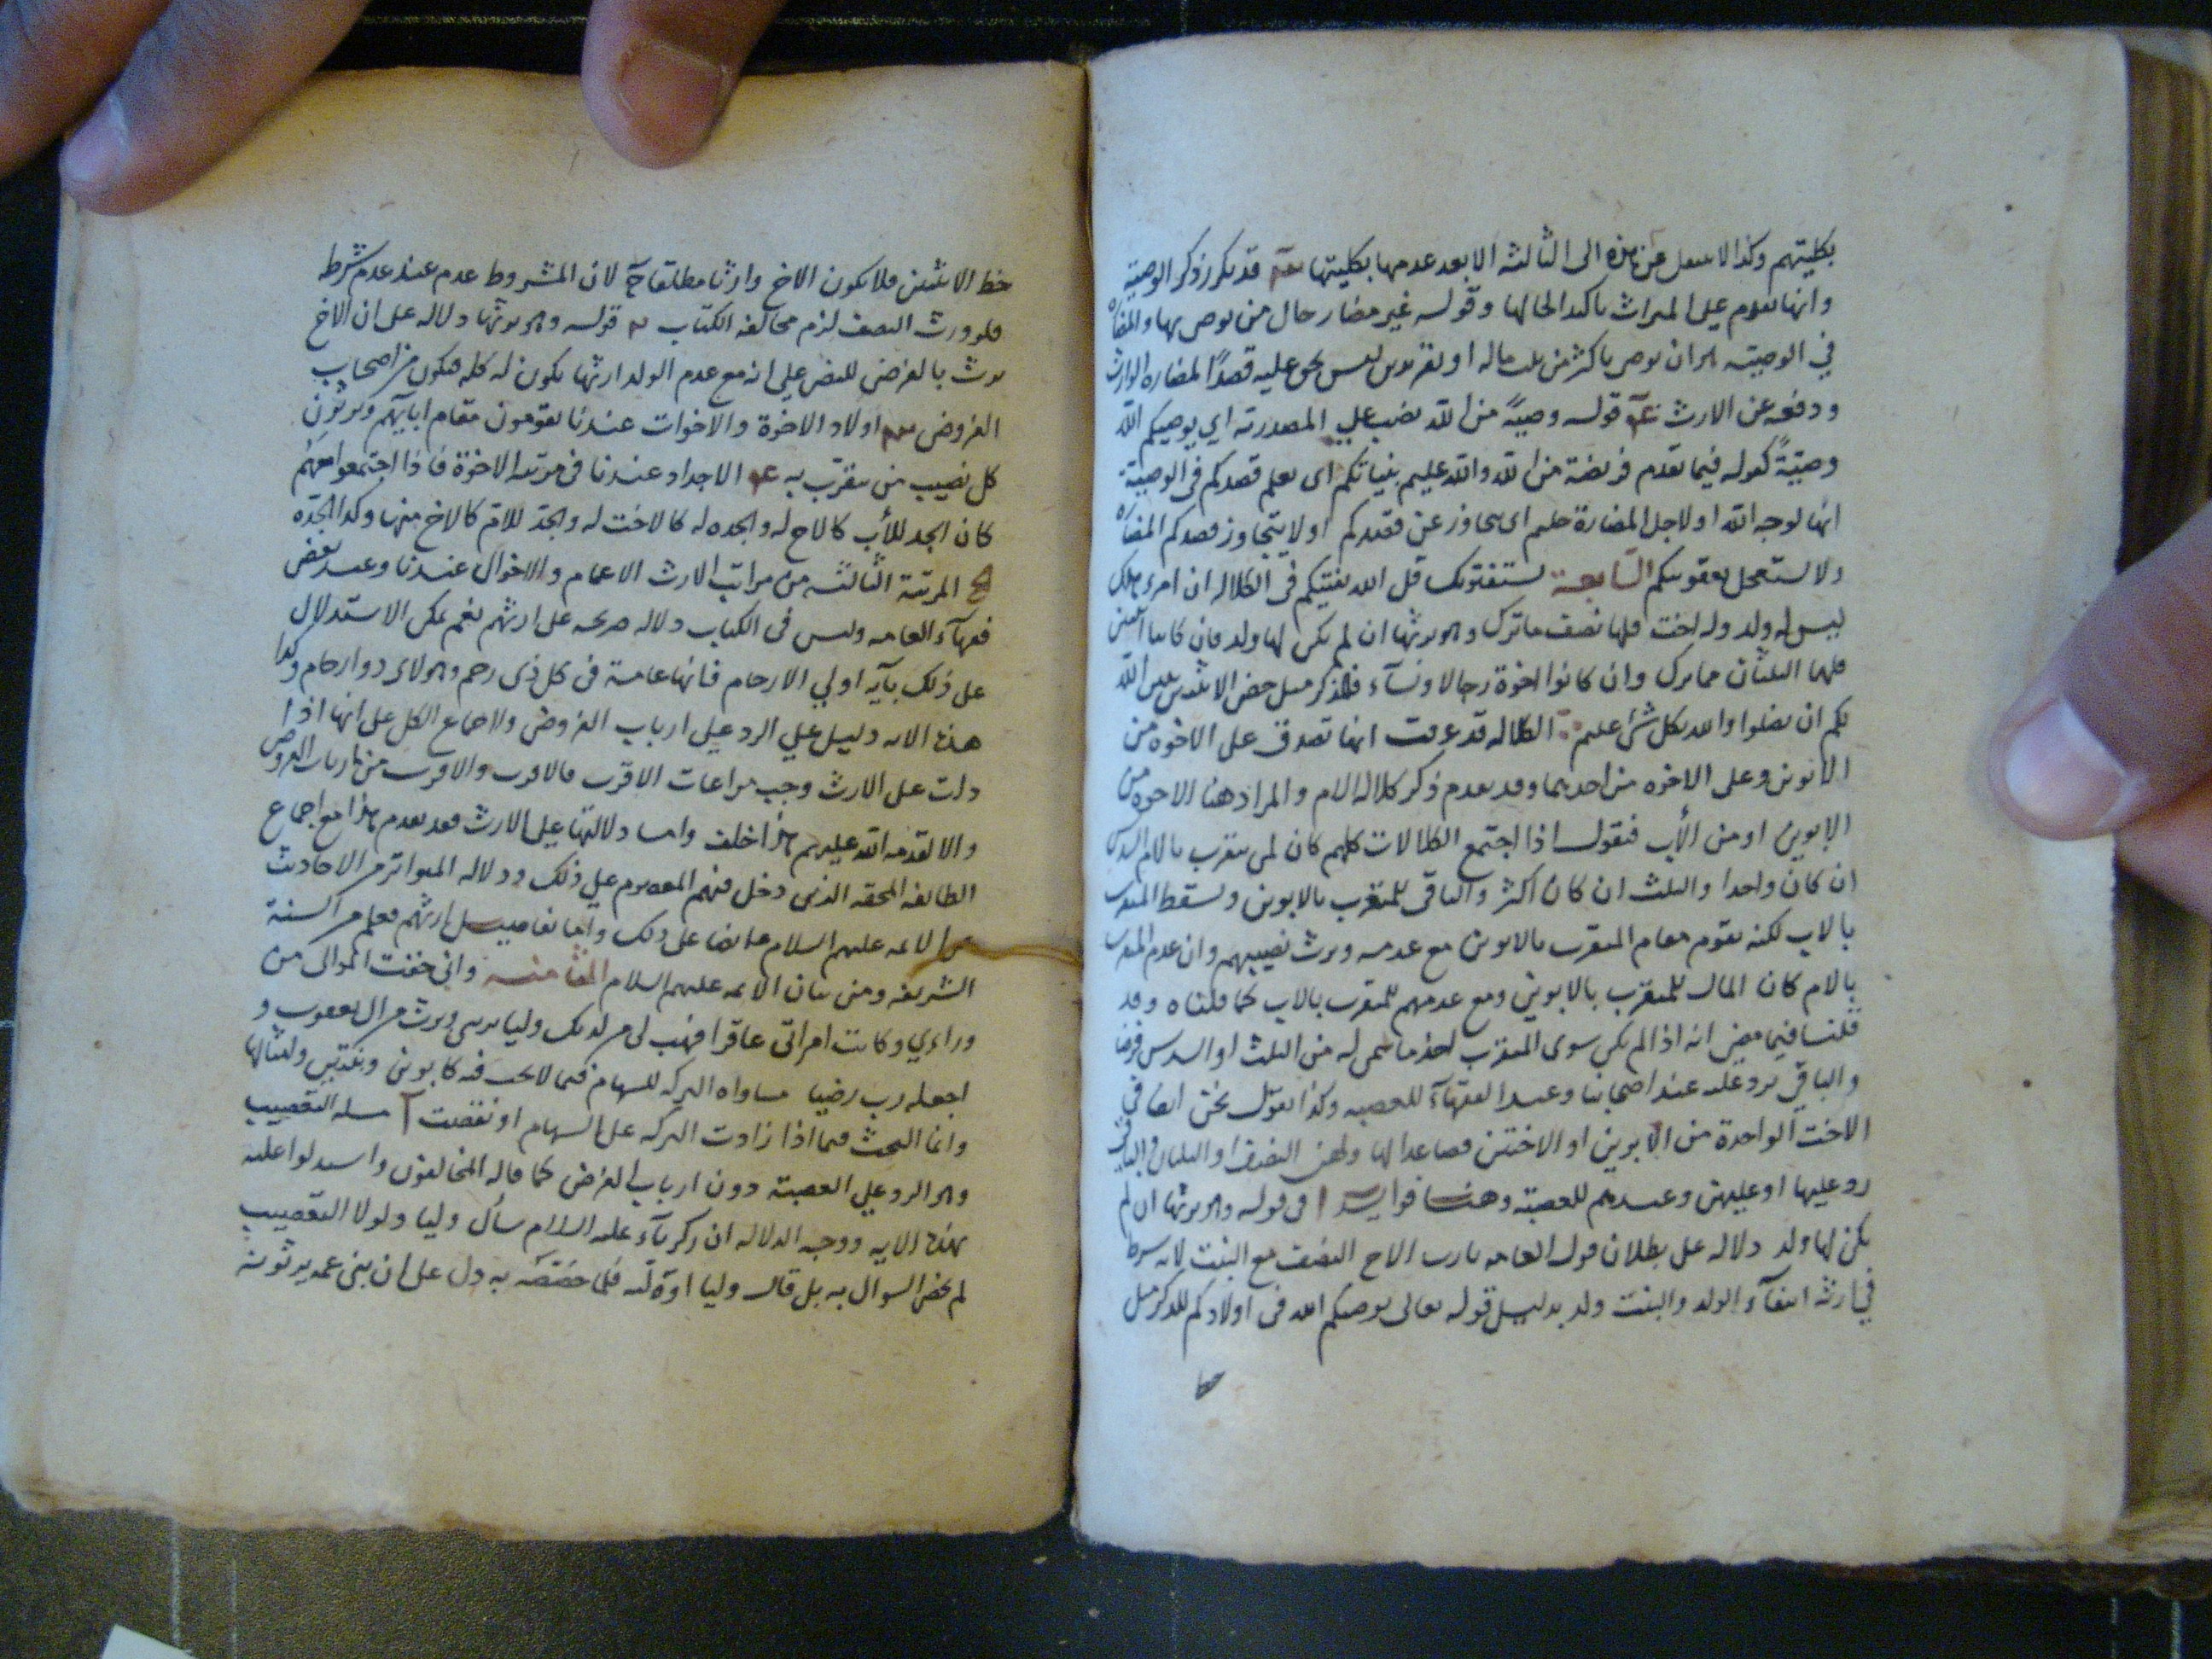 بكليتهم وكذا لا ينتقل عن هذه الى الثالثة الا بعد عدمها بكليتها قد تكرر ذكر الوصية
وانها تقدم على الميراث تاكيدا لحالها وقوله غير مضار حال من يوصى بها والمضاره
في الوصية هو ان يوصى باكثر من ثلث ماله او يقر بدين ليس بحق عليه قصدًا لمضاره الوارث
ودفعه عن الارث قوله وصيةً من الله نصب على المصدرية اي يوصيكم الله
وصيّةً كقوله فيما تقدم فريضة من الله والله عليم بنياتكم اى يعلم قصدكم فى الوصية
انها لوجه الله او لاجل المضارة حليم اى يتجاوز عن قصدكم او لا يتجاوز قصدكم المضاره
ولا يستعجل بعقوبتكم السابعة يستفتونك قل الله يفتيكم فى الكلاله ان امرؤ هلك
ليس له ولد وله اخت فلها نصف ما ترك وهو يرثها ان لم يكن لها ولد فان كانتا اثنتين
فلهما الثلثان مما ترك وان كانوا اخوة رجالا ونسآء فللذكر مثل حظ الانثيين يبين الله
لكم ان تضلوا والله بكل شئ عليم الكلاله قد عرفت انها تصدق على الاخوه من
الابوين وعلى الاخوه من احدهما وقد تقدم ذكر كلاله الام والمراد هنا الاخوه من
الابوين او من الأب فنقول اذا اجتمع الكلالات كلهم كان لمن يتقرب بالام السدس
ان كان واحدا والثلث ان كان اكثر والباقى للمتقرب بالابوين ويسقط المتقرب
بالاب لكنه يقوم مقام المتقرب بالابوين مع عدمه ويرث نصيبهم وان عدم المتقرب
بالام كان المال للمتقرب بالابوين ومع عدمهم للمتقرب بالاب كما قلناه وقد
قلنا فيما مضى انه اذا لم يكن سوى المتقرب اخذ ما سمى له من الثلث او السدس فرضا
والباقى يرد عليه عند اصحابنا وعند الفقهآء للعصبه وكذا نقول نحن ايضا فى
الاخت الواحدة من الابوين او الاختين فصاعدا لها ولهن النصف او الثلثان والباقى
رد عليها او عليهن وعندهم للعصبة وهنا فوايد ا فى قوله وهو يرثها ان لم
يكن لها ولد دلاله على بطلان قول العامه بارث الاخ النصف مع البنت لانه شرط
في ارثه انتفآء الولد والبنت ولد بدليل قوله تعالى يوصيكم الله فى اولادكم للذكر مثل
حظ
حظ الانثيين فلا يكون الاخ وارثا مطلقا ح لان المشروط عدم عند عدم شرط
فلو ورث النصف لزم مخالفه الكتاب ب قوله وهو يرثها دلاله على ان الاخ
يرث بالفرض للنص على انه مع عدم الولد ارثها يكون له كله فيكون من اصحاب
الفروض اولاد الاخوة والاخوات عندنا يقومون مقام ابآئهم ويرثون
كل نصيب من يتقرب به الاجداد عندنا فى مرتبه الاخوة فاذا اجتمعوا معهم
كان الجد للأب كالاخ له والجده له كالاخت له والجد للام كالاخ منها وكذا الجدّه
المرتبة الثالثه من مراتب الارث الاعمام والاخوال عندنا وعند بعض
فقهآء العامه وليس فى الكتاب دلاله صريحه على ارثهم نعم يمكن الاستدلال
على ذلك بآية اولي الارحام فانها عامة فى كل ذى رحم وهولاى ذوا ارحام وكذا
هذه الايه دليل على الرد على ارباب الفروض ولاجماع الكل على انها اذا
دلت على الارث وجب مراعات الاقرب فالاقرب والاقرب من ارباب الفروض
والا لقدمه الله عليهم هذا خلف واما دلالتها على الارث فقد تقدم هذا مع اجماع
الطايفه المحقه الذى دخل فيهم المعصوم على ذلك ودلاله المتواتر من الاحاديث
من الائمه عليهم السلام ايضا على ذلك واما تفاصيل ارثهم فعلم من السنة
الشريفه ومن بيان الائمه عليهم السلام الثامنه وانى خفت الموالى من
وراءى وكانت امراتى عاقرا فهب لى من لدنك وليا يرثنى ويرث من ال يعقوب و
اجعله رب رضيا مساواه التركه للسهام فيما لا بحث فيه كابوين وبنتين وامثالها
وانما البحث فيما اذا زادت التركه على السهام او نقصت ا مسله التعصيب
وهو الرد على العصبة دون ارباب الفرض كما قاله المخالفون واستدلوا عليه
بهذه الايه ووجه الدلاله ان زكريآء عليه السلام سأل وليا ولولا التعصيب
لم يخص السوال به بل قال وليا او وليّه فلما خصّصه به دل على ان بنى عمه يرثونه